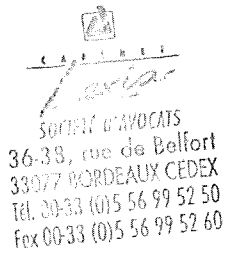 CABINET
Lexia
SOCIÉTÉ D'AVOCATS
36-38, rue de Belfort
33077 BORDEAUX CEDEX
Tél. 00-33 (0)5 56 99 52 50
Fax 00-33 (0)5 56 99 52 60